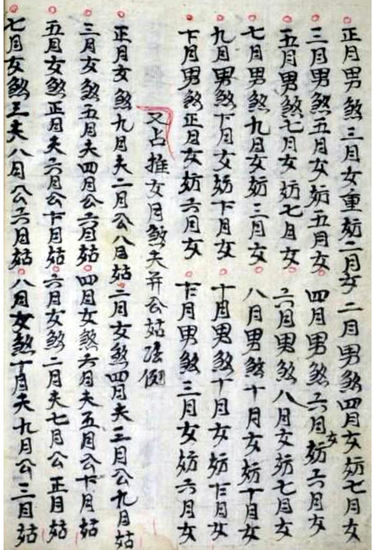 正月男煞三月女重妨二月女○二月男煞四月女妨七月女
三月男煞五月女妨五月女○四月男煞六月女妨六月女
五月男煞七月女妨七月女○六月男煞八月女妨七月女
七月男煞九月女妨三月女○八月男煞十月女妨十月女
九月男煞十一月女妨十一月女○十月男煞十月女妨十二月女
十一月男煞正月女妨六月女○十二月男煞三月女妨六月女
又占推女月煞夫并公姑例
正月女煞九月夫二月公八月姑○二月女煞四月夫三月公九月姑
三月女煞五月夫四月公六月姑○四月女煞六月夫五月公十一月姑
五月女煞正月夫六月公十一月姑○六月女煞二月夫七月公正月姑
七月女煞三夫八月公六月姑○八月女煞十月夫九月公三月姑